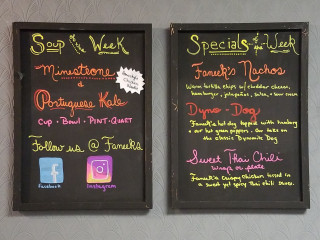 Soup of the Week
Minestrone
&
Portuguese Kale
Cup - Bowl - Pint - Quart
Follow us @ Faneeks
Facebook
Instagram
Specials of the Week
Faneek's Nachos
Warm tortilla chips w/ cheddar cheese,
hamburger, jalapeños, salsa, & sour cream
Dyno-Dog
Faneek's hot dog topped with hamburg
& our hot green peppers. Our take on
the classic Dynamite Dog
Sweet Thai Chili
wrap or plate
Faneek's crispy chicken tossed in
a sweet yet spicy Thai chili sauce.